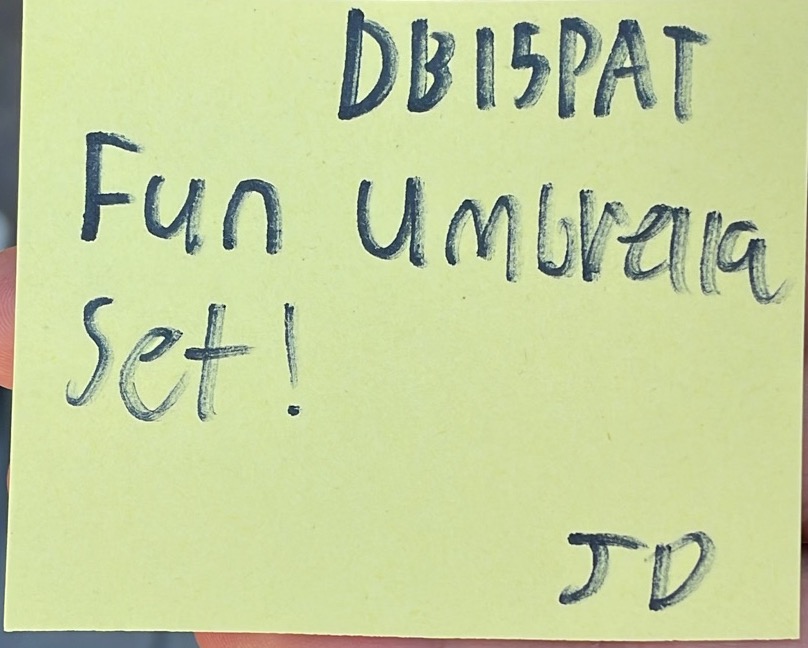 DB15PAT
Fun Umbrella
Set!
JD